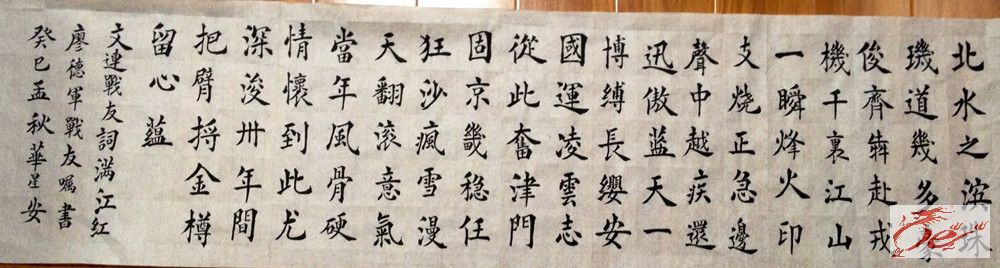 北水之滨珠
璣道幾多
俊齊犇赴戎
機千裏江山
一瞬烽火印
支烧正急邊
聲中越疾還
迅傲蓝天一
博缚長纓安
國運凌雲志
從此奮津門
固京畿稳任
狂沙瘋雪漫
天翻滚意氣
當年風骨硬
情懷到此尤
深浚卅年間
把臂捋金樽
留心蕴
文連戰友詞满江红
廖德軍戰友嘱書
癸巳孟秋華星安